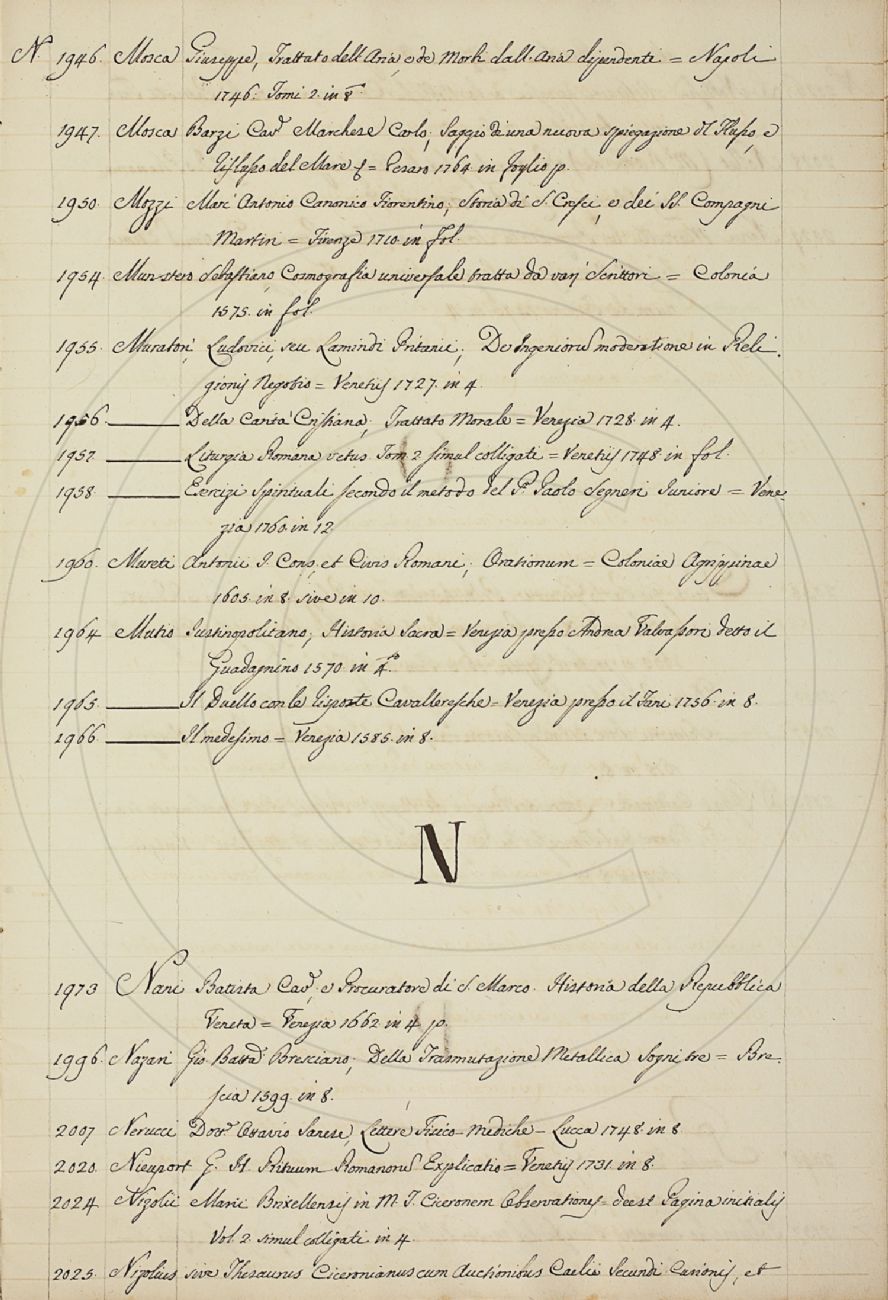 N. 1946. Mosca Giuseppe, Trattato dell'Aria, e de Morbi dall'Aria dipendenti = Napoli
1746. Tomi 2. in 8º
1947. Mosca Barzi Cavr Marchese Carlo; Saggio di una nuova spiegazione del Flusso, e
Riflusso del Mare = Pesaro 1764. in foglio p.
1950. Mozzi Marc'Antonio Canonico Fiorentino; Storia di S. Cresci, e dei SS. Compagni
Martiri = Firenze 1710. in fol.
1954. Munstero Sebastiano, Cosmografia universale tratta da varj Scrittori = Colonia
1575. in fol.
1955. Muratori, Ludovici, seu Lamindi Pritanii; De Ingeniorũ moderatione in Reli-
gionis Negotio = Venetiis 1727. in 4.
1956. ——— Della Carità Cristiana; Trattato Morale = Venezia 1728. in 4.
1957. ——— Liturgia Romana vetus Tom. 2 simul colligati = Venetiis 1748 in fol.
1958. ——— Esercizi Spirituali secondo il metodo del P. Paolo Segneri Juniore = Vene-
zia 1760. in 12.
1960. Mureti Antonii I. Cons. et Civis Romani; Orationum = Coloniae Agrippinae
1605. in 8. sive in 10.
1964 Mutio Iustinopolitano; Historia Sacra = Venezia presso Andrea Valvassori detto il
Guadagnino 1570. in 4º
1965. ——— Il Duello con le risposte Cavalleresche = Venezia presso il 1756. in 8.
1966 ——— Il medesimo = Venezia 1585. in 8.
N
1973 Nani Batista Cavr, e Procuratore di S. Marco. Historia della Repubblica
Veneta = Venezia 1662. in 4. p.
1996. Nazari Gio Battã Bresciano; Della Trasmutazione Metallica Sogni tre = Bre-
scia 1599. in 8.
2007 Nerucci Dottr Ottavio Sanese, Lettere Fisico-Mediche = Lucca 1748. in 8
2020. Nieuport G. H. Rituum Romanorũ Explicatio = Venetiis 1731. in 8.
2024 Nizolii Marii Brixellensis in M. T. Ciceronem Observationes = deest Pagina initialis
Vol. 2. simul colligati in 4.
2025. Nizolius sive Thesaurus Ciceronianus cum Auctionibus Caelii Secundi Curionis, et